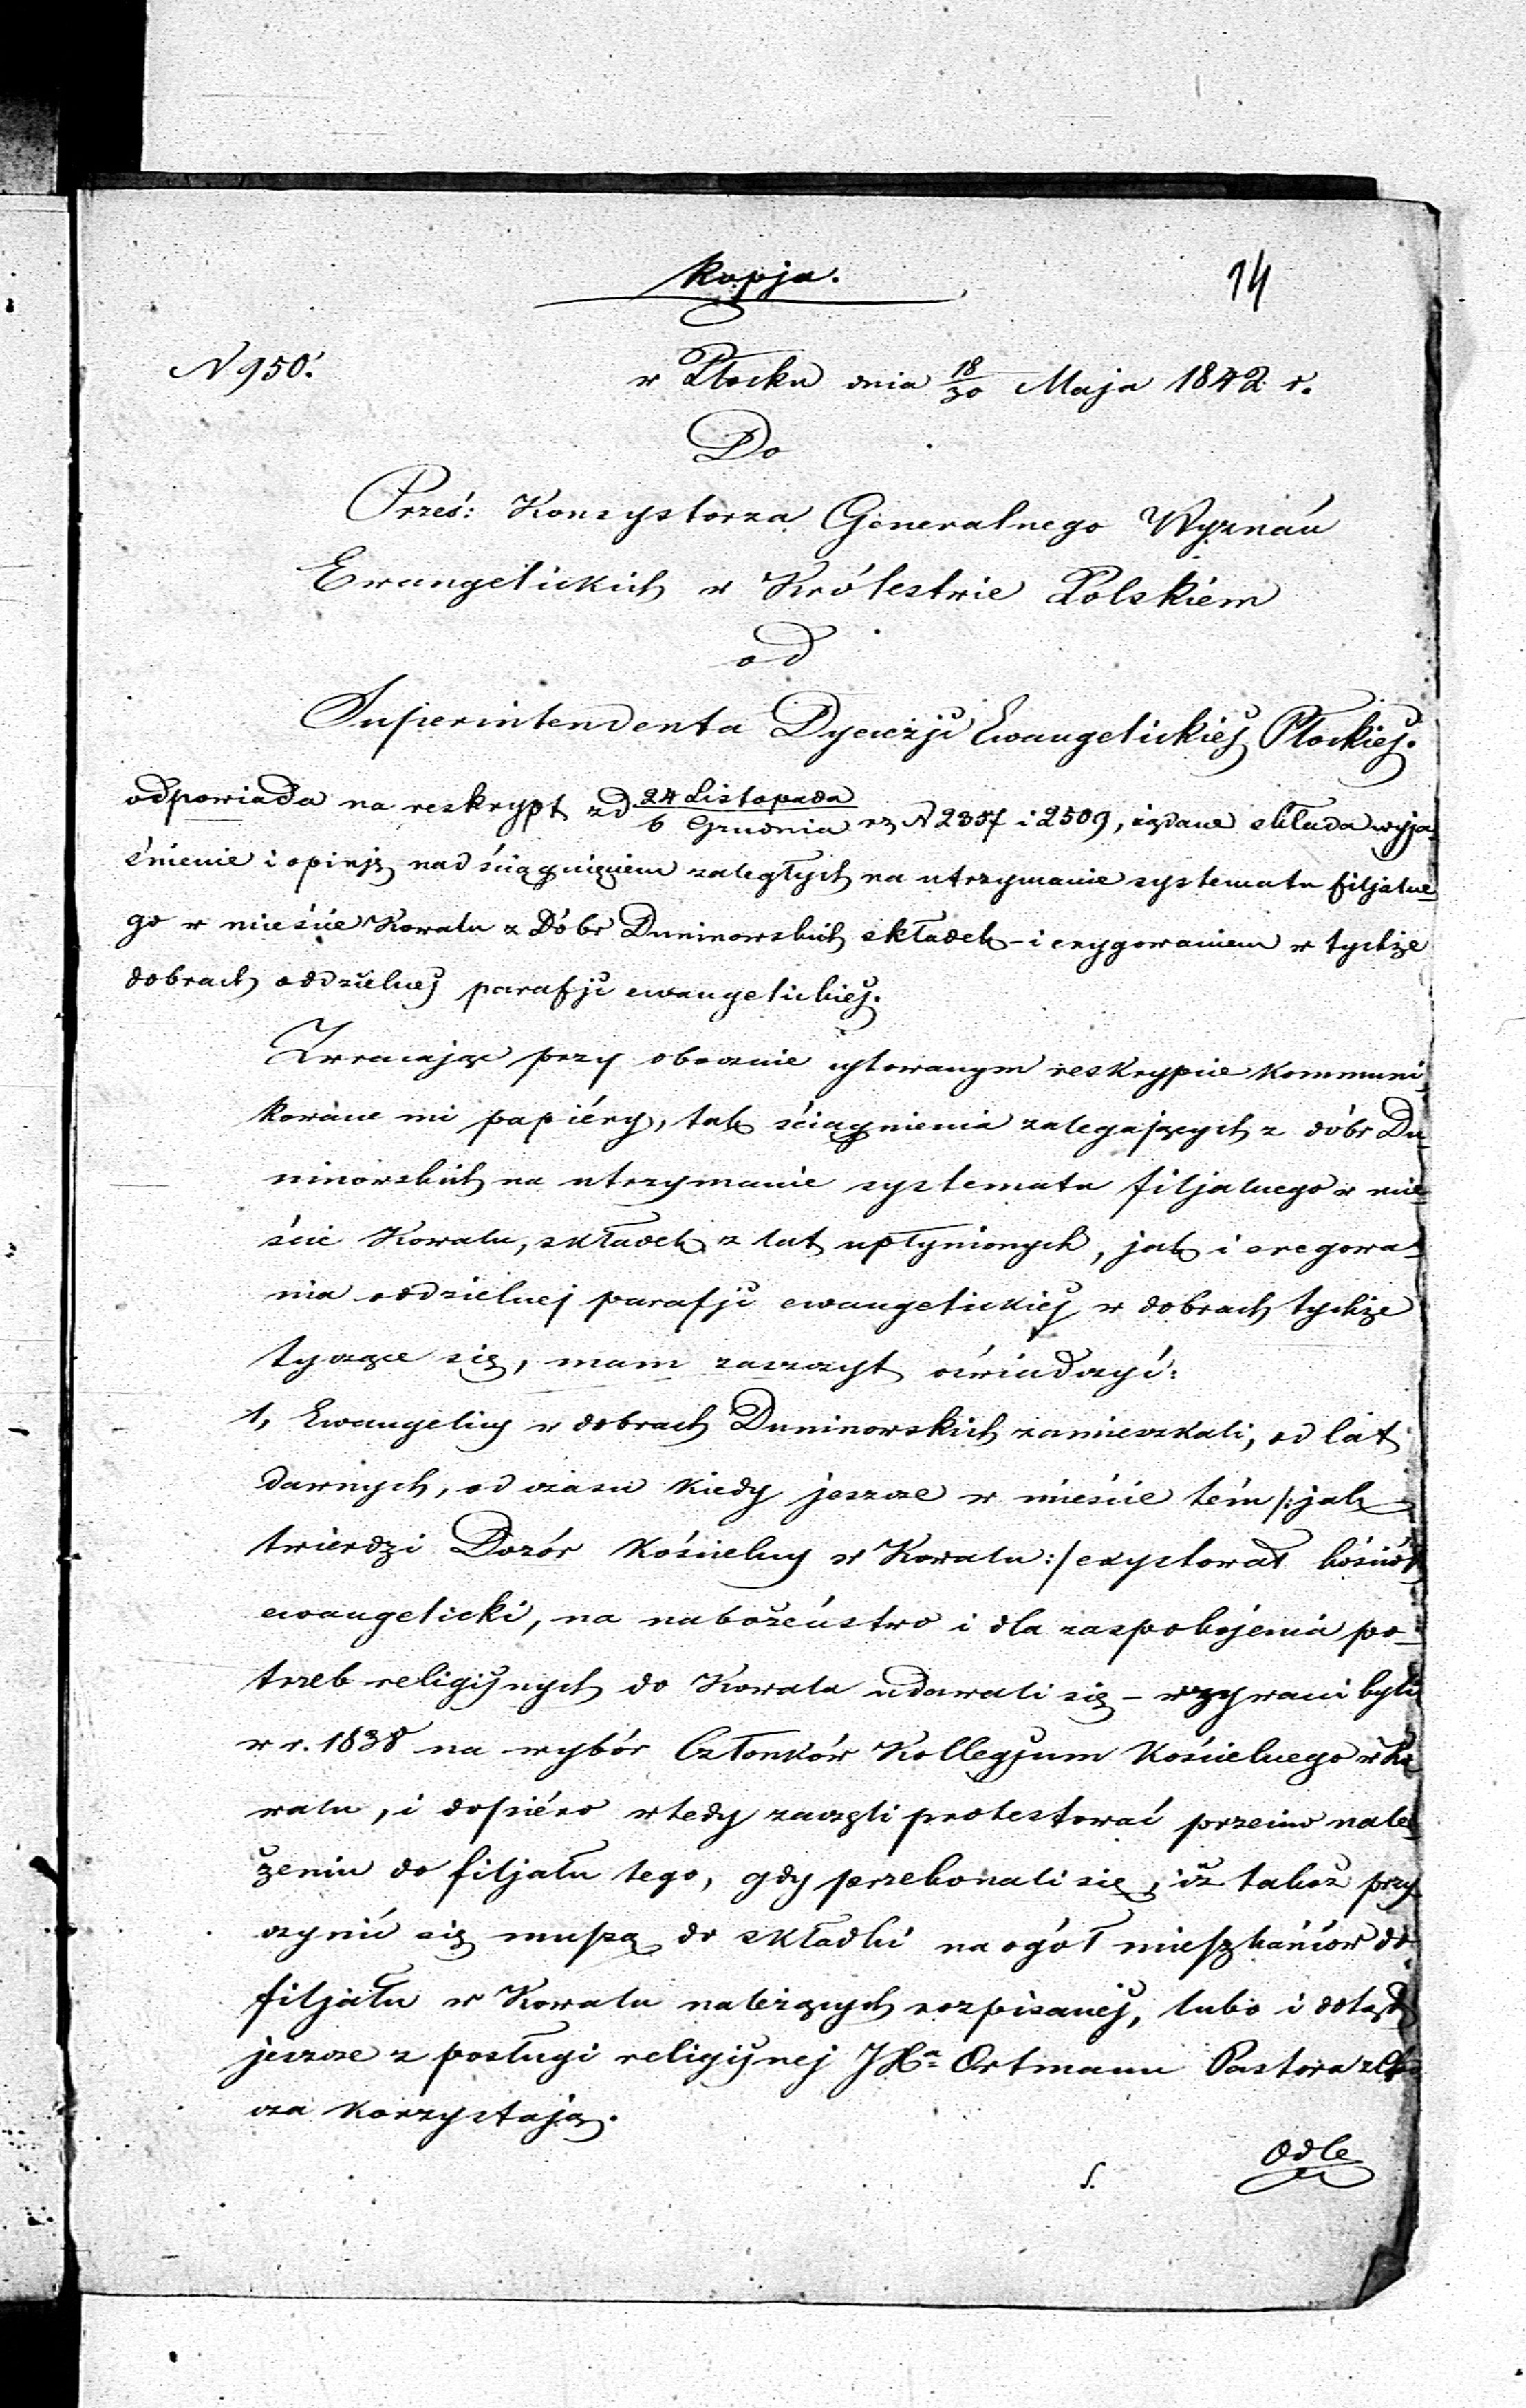 Kopja.
14
N 950.
w Płocku dnia 18/30 Maja 1842 r.
Do
Prześ: Konsystorza Generalnego Wyznań
Ewangelickich w Królestwie Polskiém
od
Superintendenta Dyecezji Ewangelickiéj Płockiéj.
odpowiada na reskrypt zd 24 Listopada/6 Grudnia rz N 2357 i 2509, żądane składa wyja-
śnienie i opinję nad ściągnięciem zaległych na utrzymanie systematu filjalne-
go w mieście Kowalu z Dóbr Duninowskich składek - i erygowaniem w tychże
dobrach oddzielnéj parafji ewangelickiéj.
Zwracając przy obocznie cytowanym reskrypcie kommuni-
kowane mi papiéry, tak ściągnienia zalegających z dóbr Du-
ninowskich na utrzymanie systematu filjalnego w mie-
ście Kowalu, składek z lat upłynionych, jak i eregowa-
nia oddzielnej parafji ewangelickiéj w dobrach tychże
tyczące się, mam zaszczyt oświadczyć:
1, Ewangelicy w dobrach Duninowskich zamieszkali, od lat
dawnych, od czasu kiedy jeszcze w mieście tém /: jak
twierdzi Dozór Kościelny w Kowalu :/ exystował kościół
ewangelicki, na nabożeństwo i dla zaspokojenia po-
trzeb religijnych do Kowala udawali się - wzywani byli
w r. 1838 na wybór Członków Kollegjum Kościelnego w Ko
walu, i dopiéro wtedy zaczęli protestować przeciw nale-
żeniu do filjału tego, gdy przekonali się, iż także przy-
czynić się muszą do składki na ogół mieszkańców do
filjału w Kowalu należących rozpisanéj, lubo i dotąd
jeszcze z posługi religijnej JXa Ortmann Pastora z
cza korzystają.
Odle